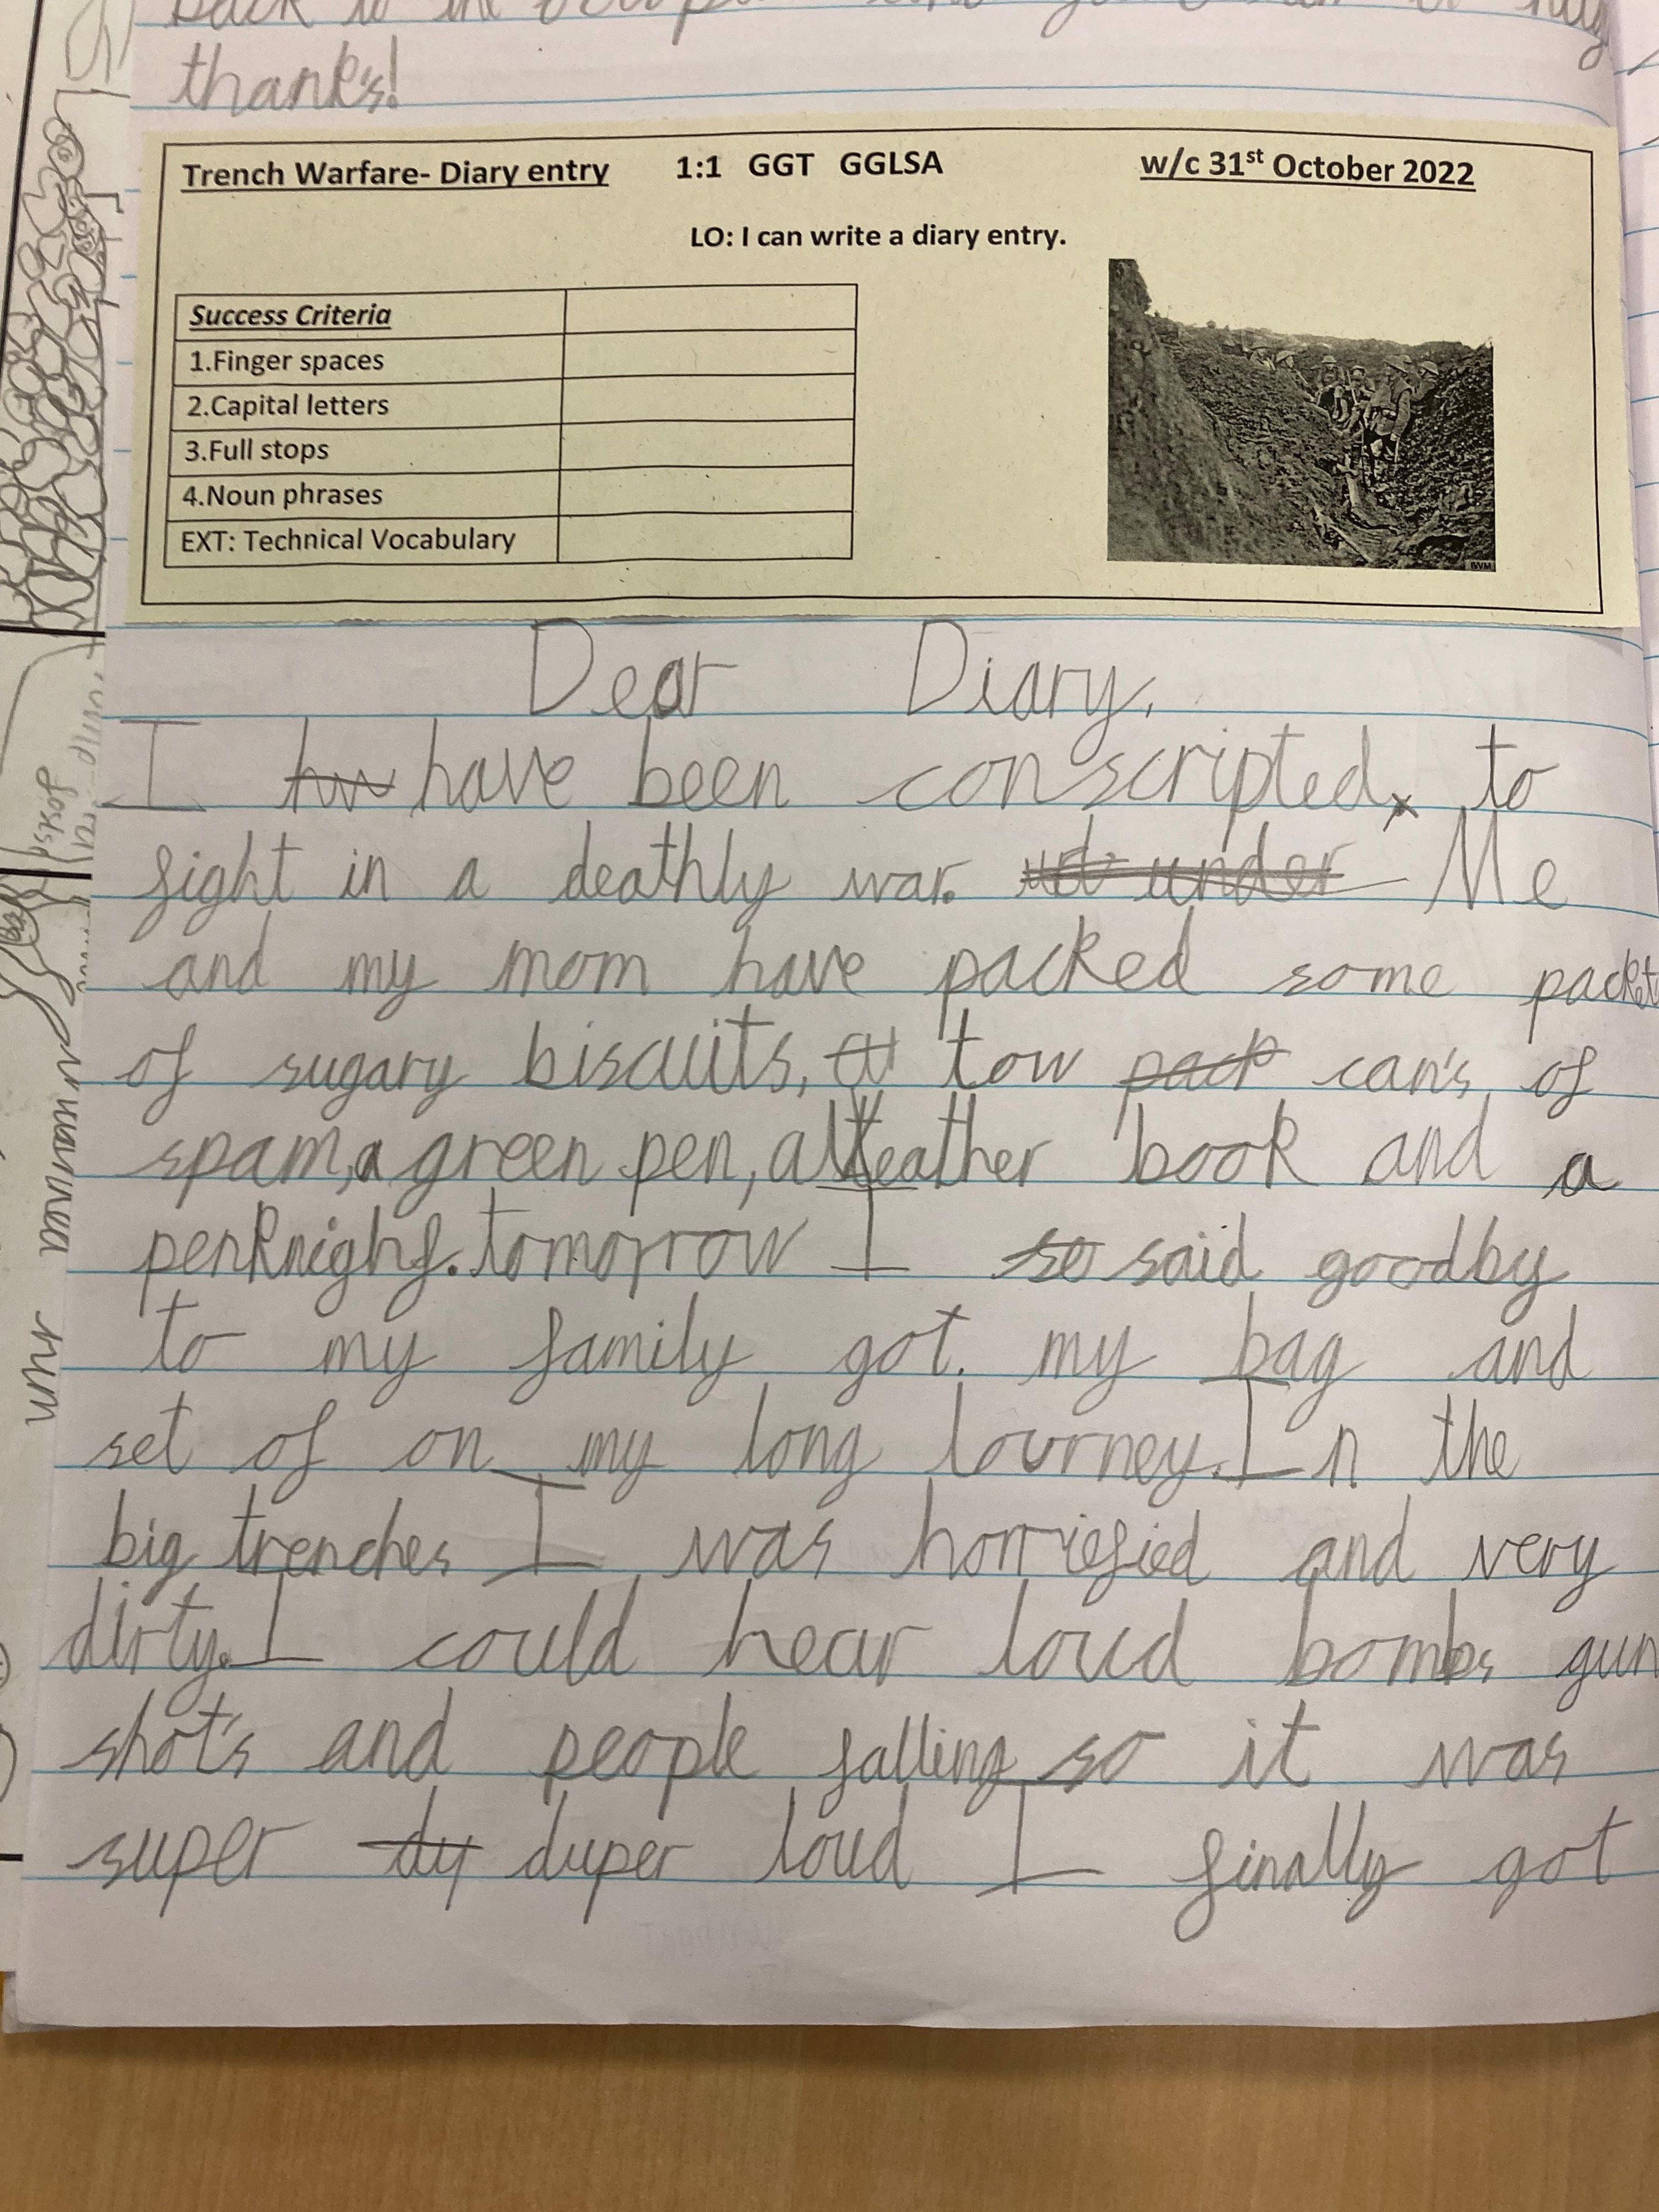 back to the
thank's!
Trench Warfare- Diary entry 1:1 GGT GGLSA w/c 31st October 2022
LO: I can write a diary entry.
Success Criteria
1.Finger spaces
2.Capital letters
3.Full stops
4.Noun phrases
EXT: Technical Vocabulary
IWM
Dear Diary,
I have been conscripted to
fight in a deathly war. Me
and my mom have packed some packet
of sugary biscuits, tow can's of
spam, a green pen, a leather book and a
penknighf. tomorrow I said goodby
to my family got my bag and
set of on my long Lourney. In the
big trenches I was horriefied and very
dirty. I could hear loud bombs gun
shot's and people falling so it was
super duper loud I finally got